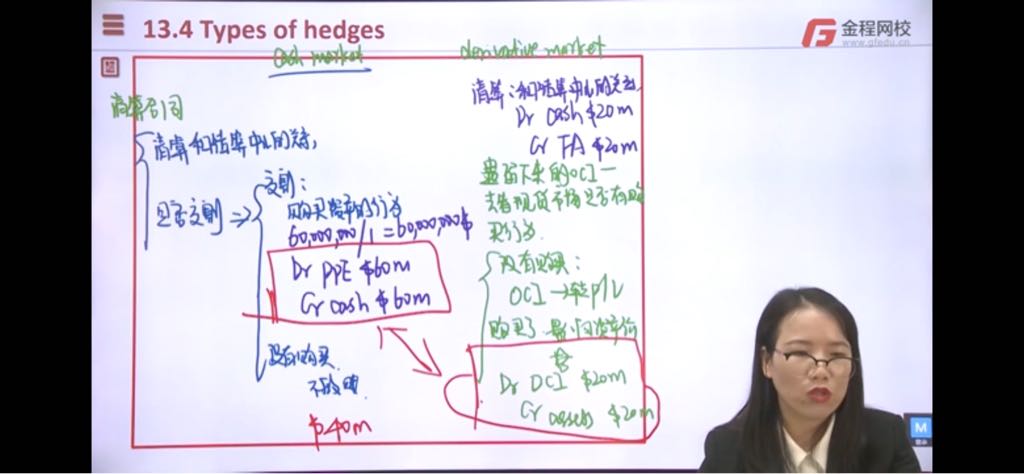 13.4 Types of hedges
金程网校
www.gfedu.cn
cash market
derivative market
清算公司
清算和结算中心的关系
是否交割 ⇒
交割:
购买货车的行为
60,000,000/1 = 60,000,000$
Dr PPE $60m
Cr cash $60m
没有购买
$40m
清算:和结算中心的关系
Dr cash $20m
Cr FA $20m
遗留下来的OCI—
去看现货市场是否有购
买行为.
没有购买:
OCI → 转P/L
Dr OCI $20m
Cr assets $20m
M